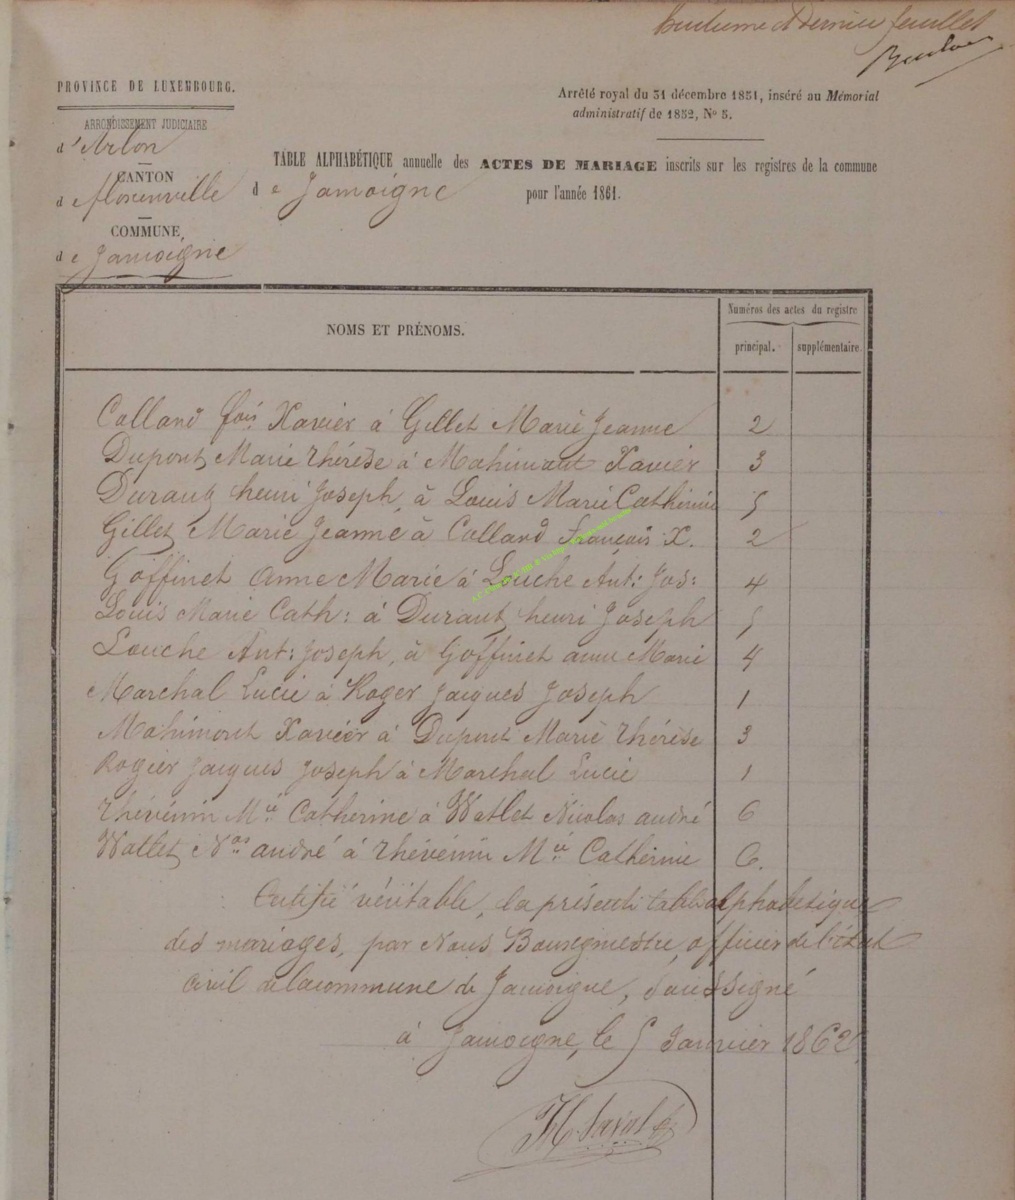 et dernier feuillet
PROVINCE DE LUXEMBOURG.
ARRONDISSEMENT JUDICIAIRE
d'Arlon
CANTON
de Florenville
COMMUNE,
de Jamoigne
Arrêté royal du 31 décembre 1851, inséré au Mémorial
administratif de 1852, No 5.
TABLE ALPHABÉTIQUE annuelle des ACTES DE MARIAGE inscrits sur les registres de la commune
de Jamoigne pour l'année 1861.
NOMS ET PRÉNOMS.
Numéros des actes du registre
principal. supplémentaire.
Colland fois Xavier à Gillet Marie Jeanne 2
Dupont Marie thérèse à Mahimont Xavier 3
Duraut henri Joseph, à Louis Marie Catherine 5
Gillet Marie Jeanne à Colland François X. 2
Goffinet Anne Marie à Louche Ant: Jos: 4
Louis Marie Cath: à Duraut henri Joseph 5
Louche Ant: Joseph, à Goffinet anne Marie 4
Marchal Lucie à Roger Jacques Joseph 1
Mahimont Xavier à Dupont Marie thérèse 3
Rogier Jacques Joseph à Marchal Lucie 1
thévénin Mie Catherine à Watlet Nicolas andré 6
Watlet Nas andré à thévénin Mie Catherine 6.
Certifié véritable, la présente table alphabétique
des mariages, par Nous Bourgmestre, officier de l'état
civil de la commune de Jamoigne, soussigné
à Jamoigne, le 5 Janvier 1862.